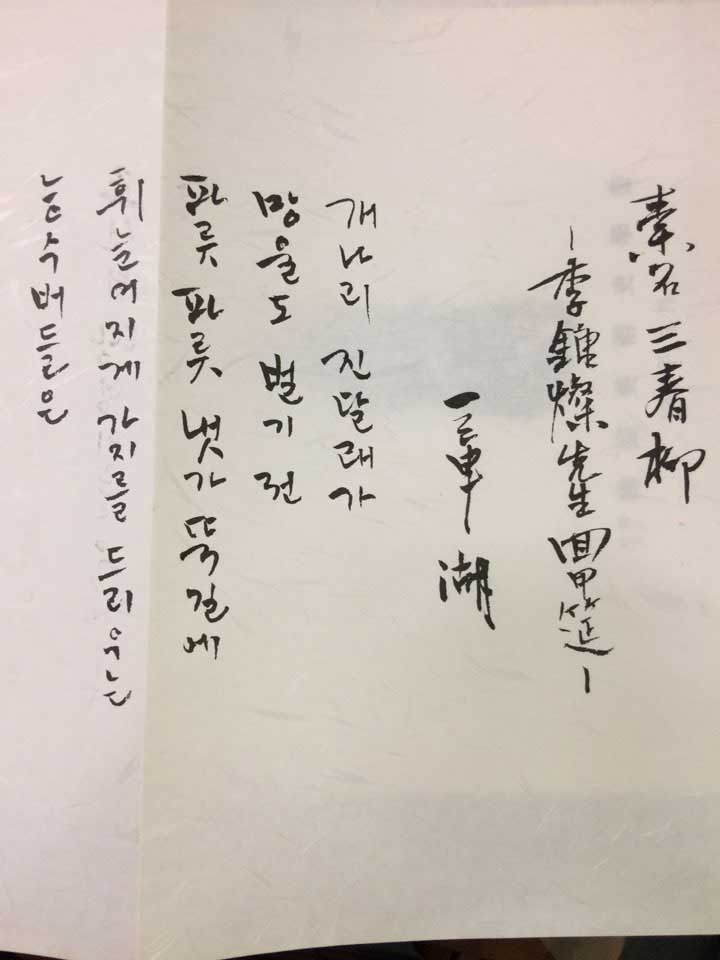 三春柳
－李鍾燦先生回甲筵－
湖
개나리 진달래가
망울도 벌기 전
파릇 파릇 냇가 뚝길에
휘늘어지게 가지를 드리우는
능수버들은